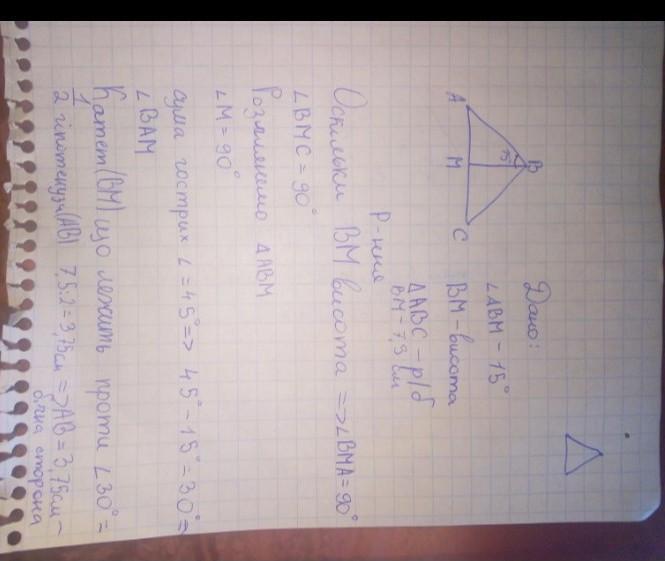 Дано:
∠ABM - 15°
BM - висота
ΔABC - р/б
BM - 7,5 см
B
15°
A
M
C
Р-ння
Оскільки BM висота => ∠BMA = 90°
∠BMC = 90°
Розглянемо ΔABM
∠M = 90°
сума гострих ∠ = 45° => 45° - 15° = 30° =
∠BAM
Катет (BM) що лежить проти ∠30° =
1/2 гіпотенузи (AB) 7,5:2 = 3,75см => AB = 3,75см -
бічна сторона